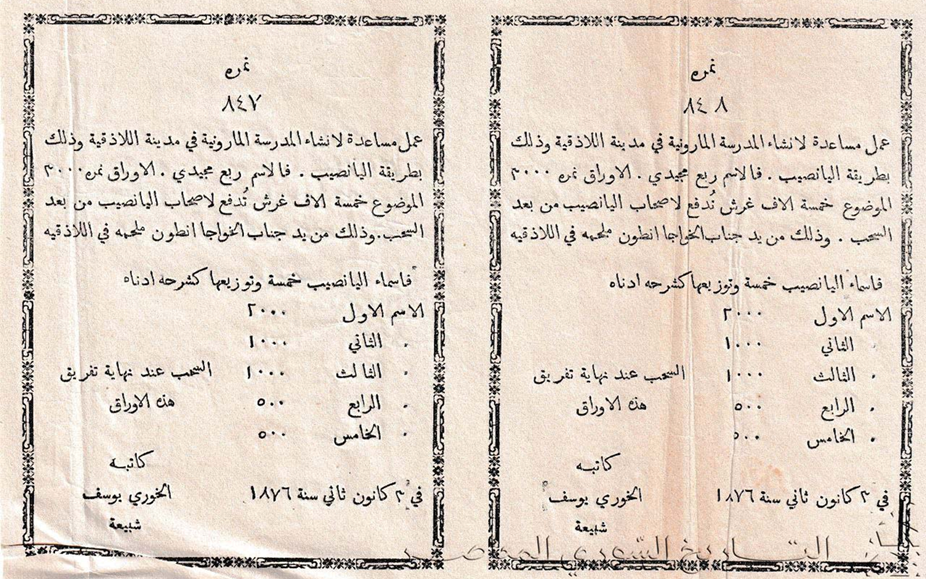 نمره
٨٤٨
عمل مساعدة لانشاء المدرسة المارونية في مدينة اللاذقية وذلك
بطريقة اليانصيب . فالاسم ربع مجيدي . الاوراق نمره ٣٠٠٠
الموضوع خمسة الاف غرش تُدفع لاصحاب اليانصيب من بعد
السحب . وذلك من يد جناب الخواجا انطون ملحمه في اللاذقيه
فاسماء اليانصيب خمسة وتوزيعها كشرحه ادناه
الاسم الاول ٢٠٠٠
. الثاني ١٠٠٠
. الثالث ١٠٠٠ السحب عند نهاية تفريق
. الرابع ٥٠٠ هذه الاوراق
. الخامس ٥٠٠
كاتبه
في ٣ كانون ثاني سنة ١٨٧٦ الخوري يوسف
شبيعة
نمره
٨٤٧
عمل مساعدة لانشاء المدرسة المارونية في مدينة اللاذقية وذلك
بطريقة اليانصيب . فالاسم ربع مجيدي . الاوراق نمره ٣٠٠٠
الموضوع خمسة الاف غرش تُدفع لاصحاب اليانصيب من بعد
السحب . وذلك من يد جناب الخواجا انطون ملحمه في اللاذقيه
فاسماء اليانصيب خمسة وتوزيعها كشرحه ادناه
الاسم الاول ٢٠٠٠
. الثاني ١٠٠٠
. الثالث ١٠٠٠ السحب عند نهاية تفريق
. الرابع ٥٠٠ هذه الاوراق
. الخامس ٥٠٠
كاتبه
في ٣ كانون ثاني سنة ١٨٧٦ الخوري يوسف
شبيعة
التاريخ السوري